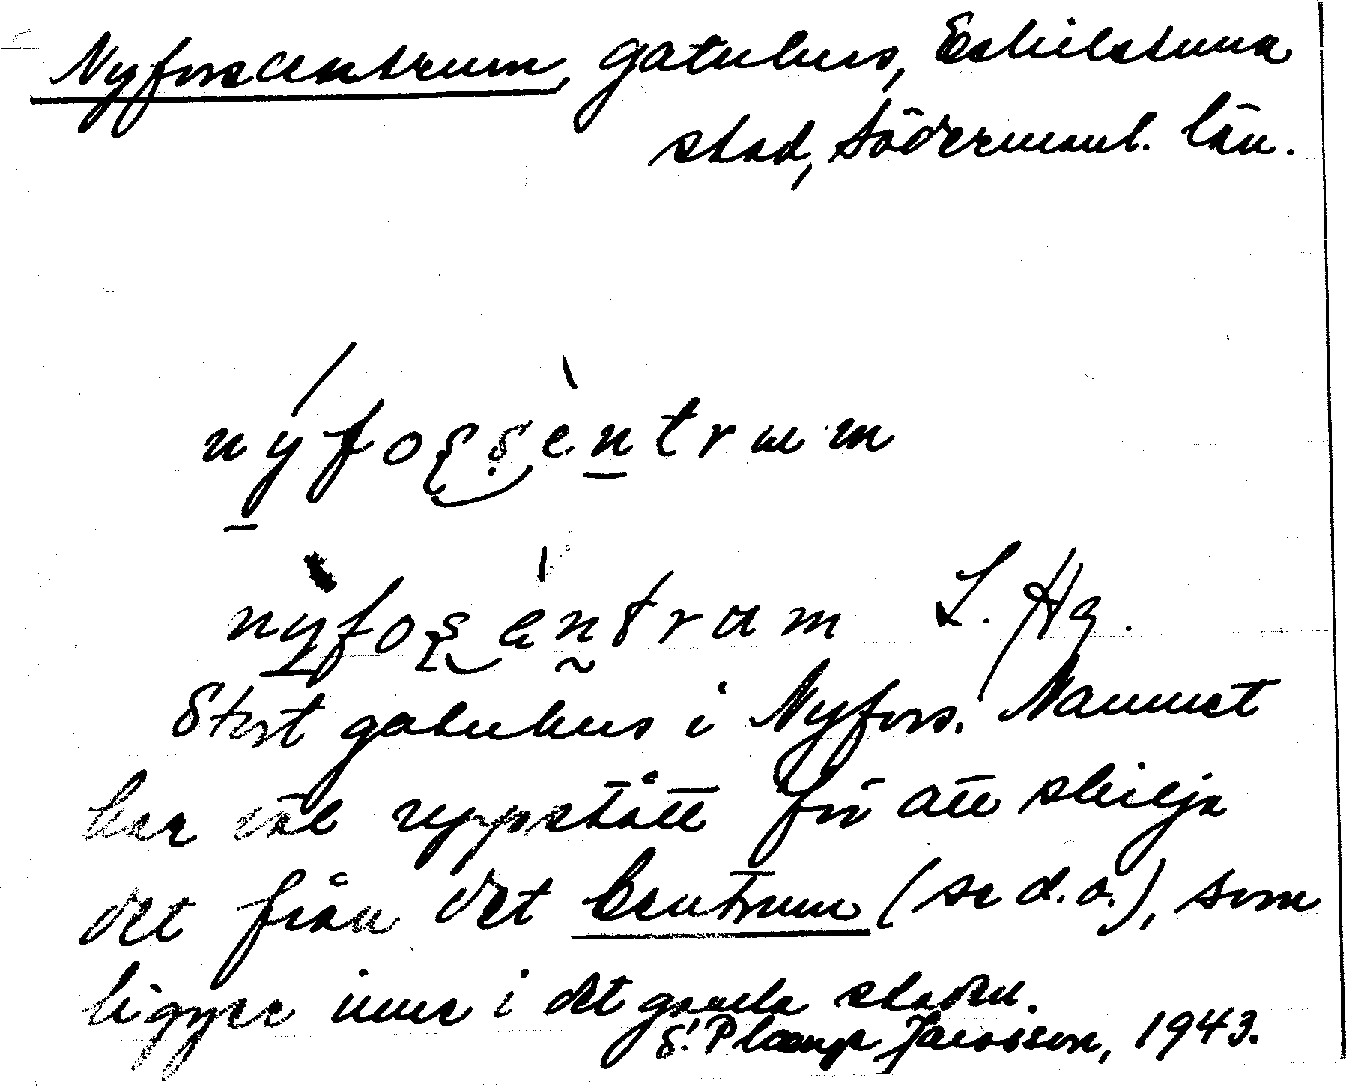 Nyforscentrum, gatuhus, Eskilstuna
stad, Södermanl. län.
nyfossentrum
nyfosentrum L. Hg.
Stort gatuhus i Nyfors. Namnet
har väl uppstått för att skilja
det från det Centrum (se d.o.), som
ligger inne i det gamla staden.
S. Plœnge Jacobsson, 1943.